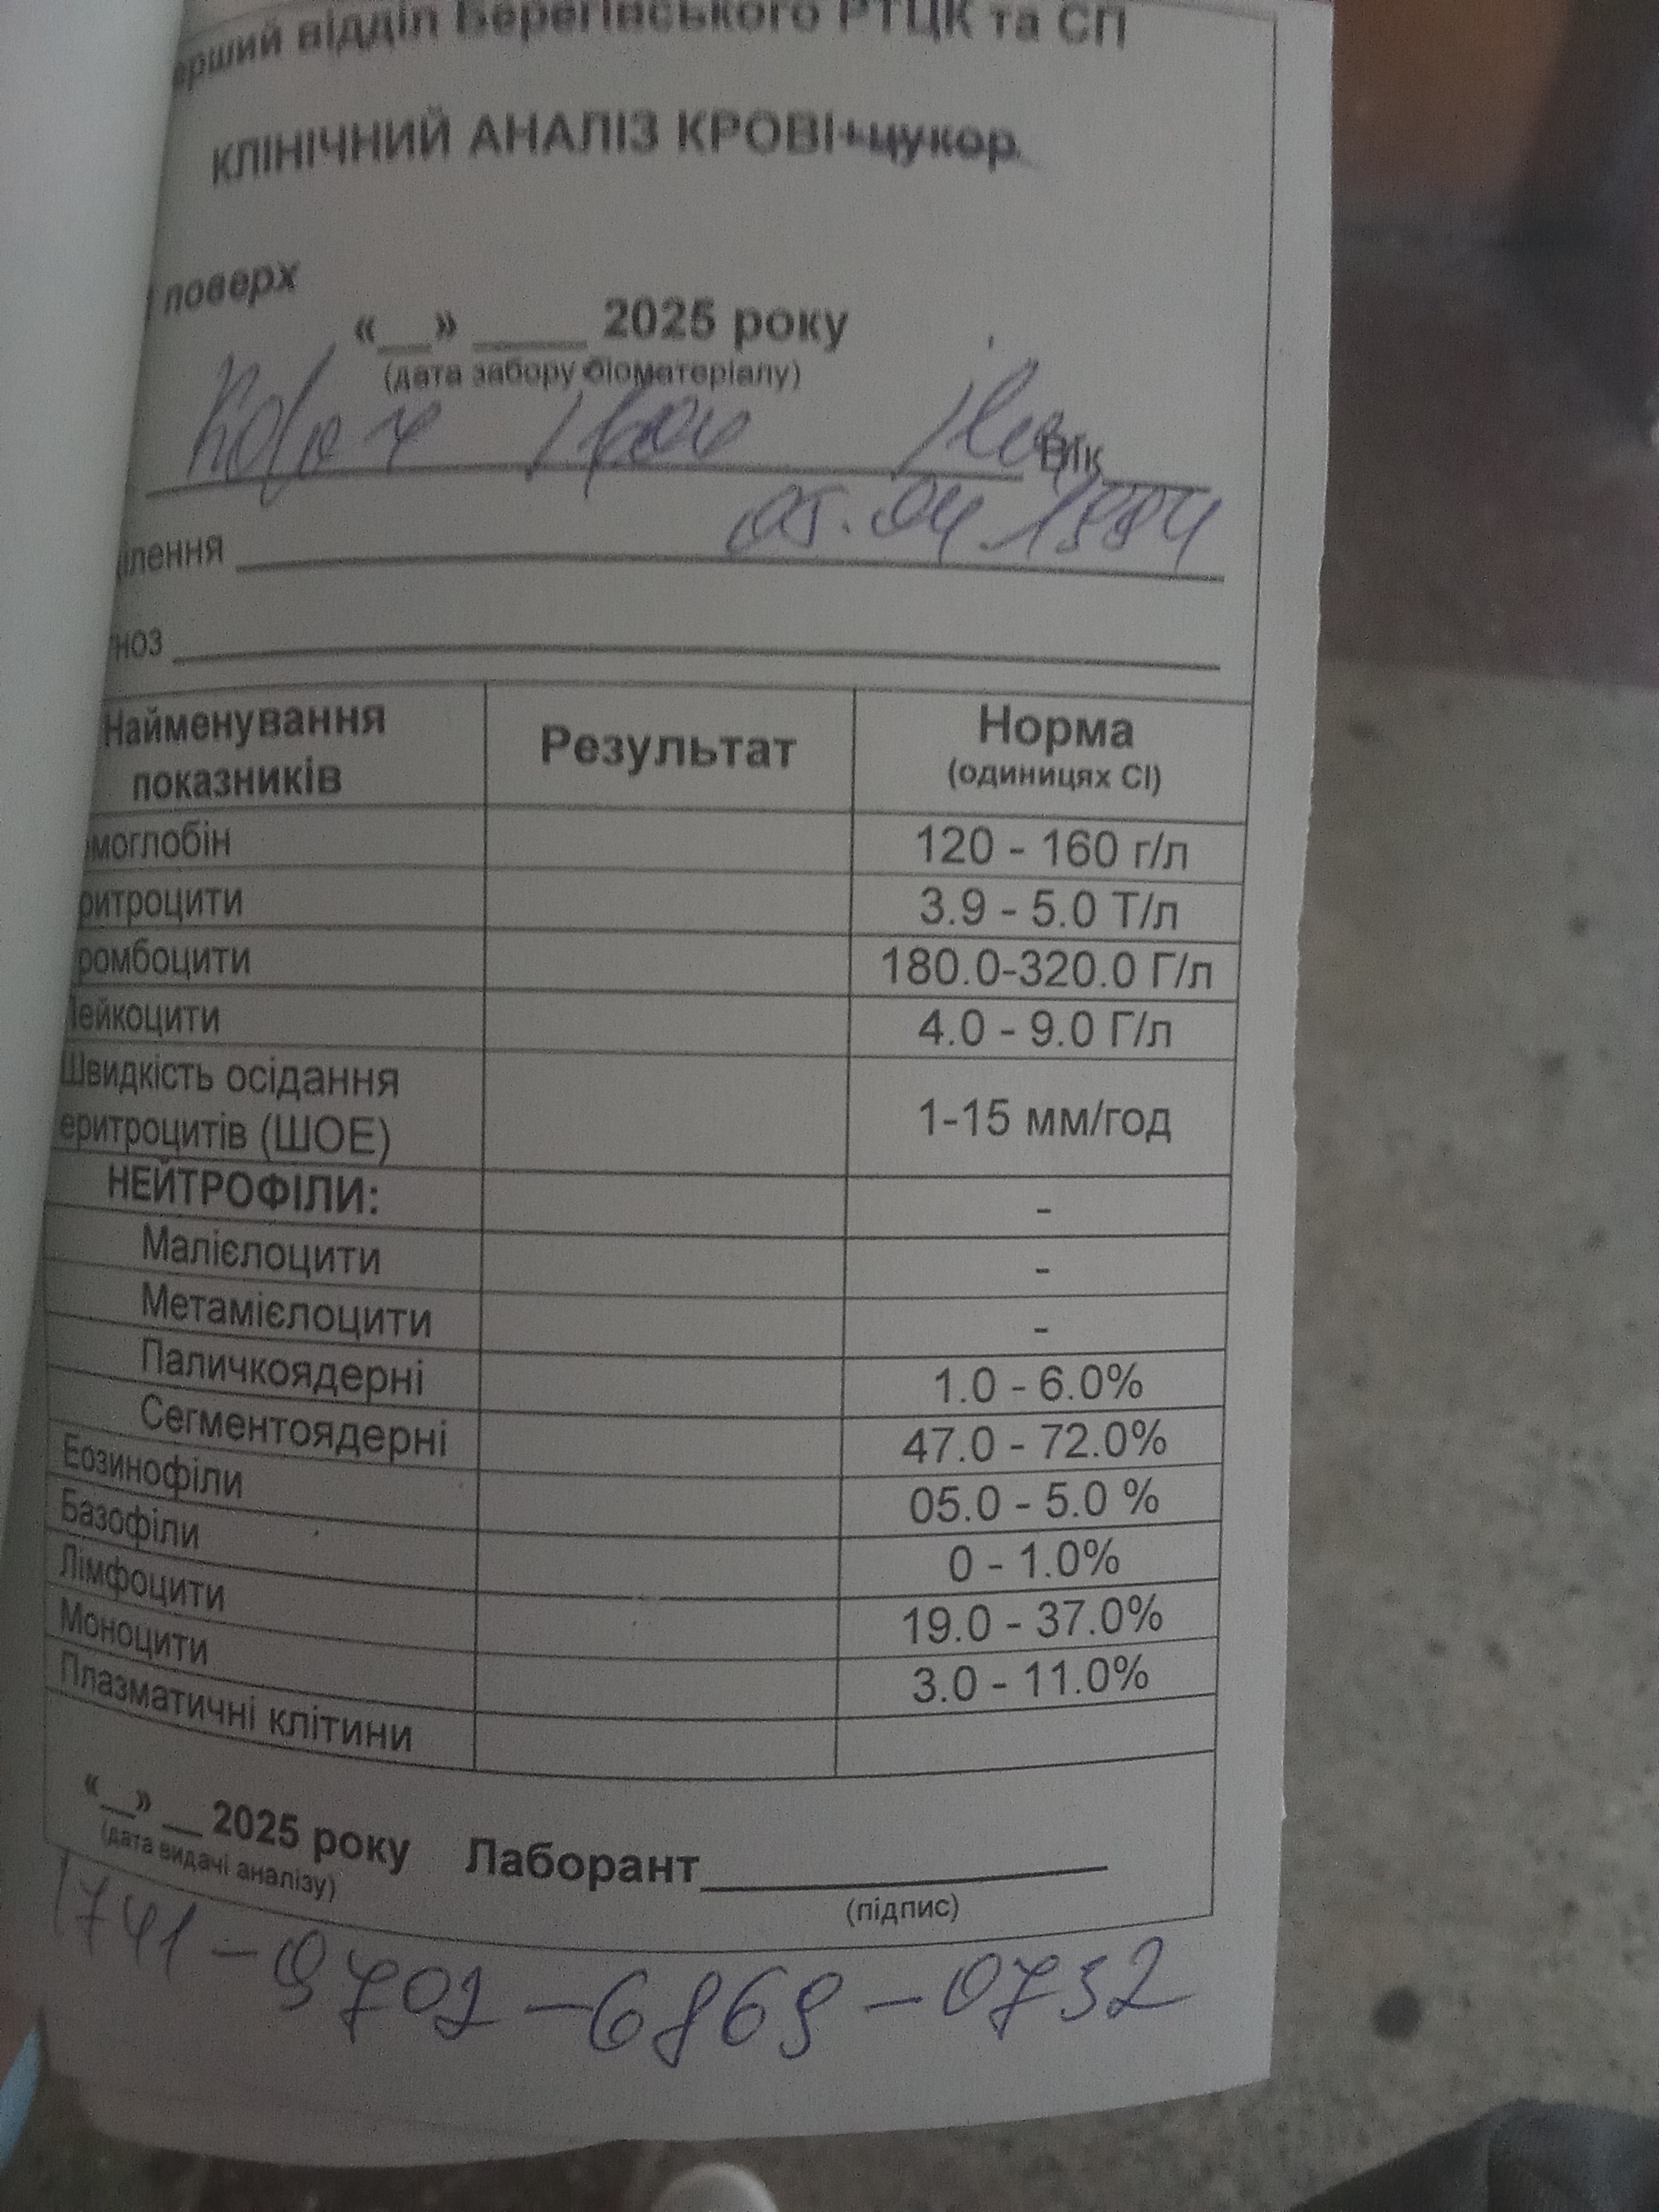 ерший відділ Берегівського РТЦК та СП
КЛІНІЧНИЙ АНАЛІЗ КРОВІ+цукор.
поверх
«__» _____ 2025 року
(дата забору біоматеріалу)
Іван Вік
05.04.1984
ілення
ноз
Найменування показників Результат Норма (одиницях СІ)
моглобін 120 - 160 г/л
ритроцити 3.9 - 5.0 Т/л
ромбоцити 180.0-320.0 Г/л
Лейкоцити 4.0 - 9.0 Г/л
Швидкість осідання еритроцитів (ШОЕ) 1-15 мм/год
НЕЙТРОФІЛИ: -
Малієлоцити -
Метамієлоцити -
Паличкоядерні 1.0 - 6.0%
Сегментоядерні 47.0 - 72.0%
Еозинофіли 05.0 - 5.0 %
Базофіли 0 - 1.0%
Лімфоцити 19.0 - 37.0%
Моноцити 3.0 - 11.0%
Плазматичні клітини
«__» __ 2025 року Лаборант
(дата видачі аналізу) (підпис)
1741-9702-6869-0732